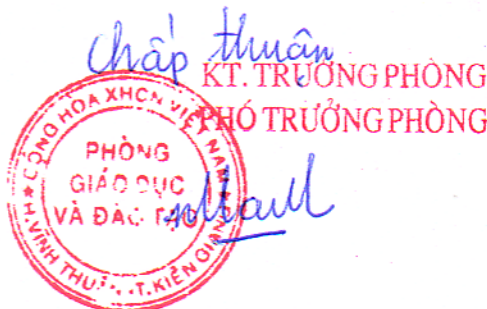 Chấp thuận
KT. TRƯỞNG PHÒNG
PHÓ TRƯỞNG PHÒNG
CỘNG HÒA XHCN VIỆT NAM
PHÒNG
GIÁO DỤC
VÀ ĐÀO TẠO
H.VĨNH THUẬN T.KIÊN GIANG